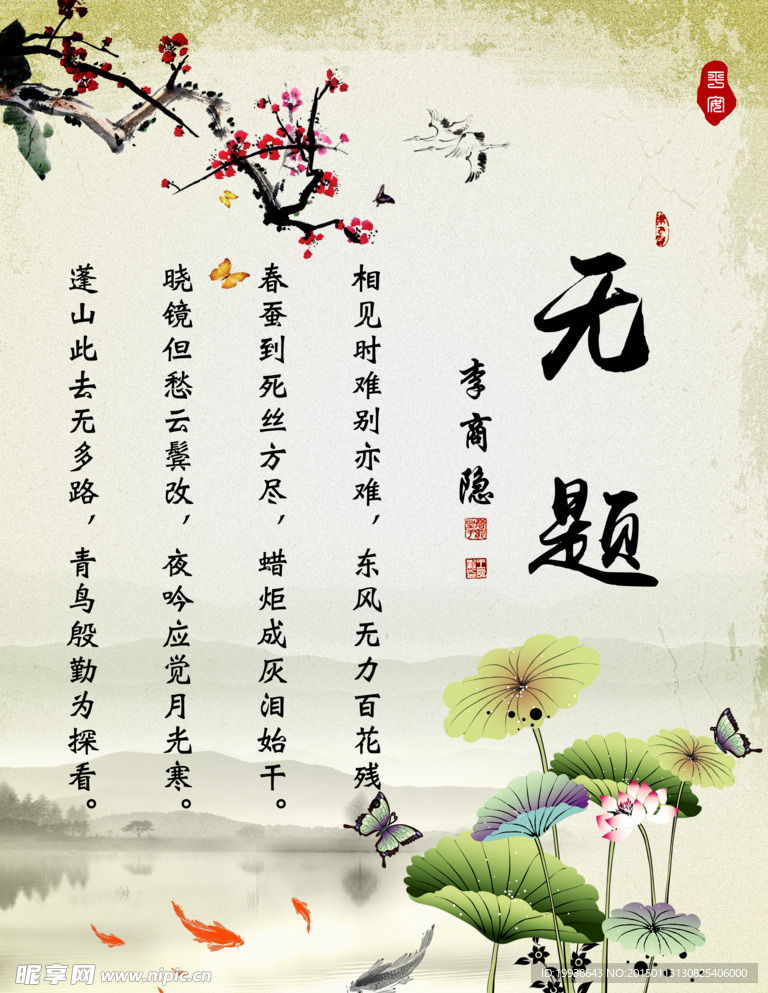 平安
无题
李商隐
相见时难别亦难，东风无力百花残。
春蚕到死丝方尽，蜡炬成灰泪始干。
晓镜但愁云鬓改，夜吟应觉月光寒。
蓬山此去无多路，青鸟殷勤为探看。
昵享网 www.nipic.cn
ID:19938643 NO:20150113130825406000